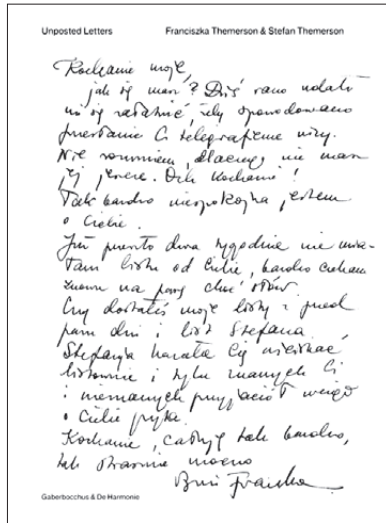 Unposted Letters Franciszka Themerson & Stefan Themerson
Kochanie moje,
jak się masz? Dziś rano udało
mi się załatwić, żeby spowodowano
przesłanie Ci telegrafem wizy.
Nie rozumiem, dlaczego nie masz
jej jeszcze. Och kochanie!
Tak bardzo niespokojna jestem
o Ciebie.
Już prawie dwa tygodnie nie mia-
łam listu od Ciebie, bardzo czekam
znowu na parę choć słów.
Czy dostałeś moje listy z przed
paru dni i list Stefana
Stefanja kazała Cię uściskać
listownie i tylu znanych Ci
i nieznanych przyjaciół wciąż
o Ciebie pyta.
Kochanie, całuję tak bardzo,
tak strasznie mocno
Franka
Gaberbocchus & De Harmonie